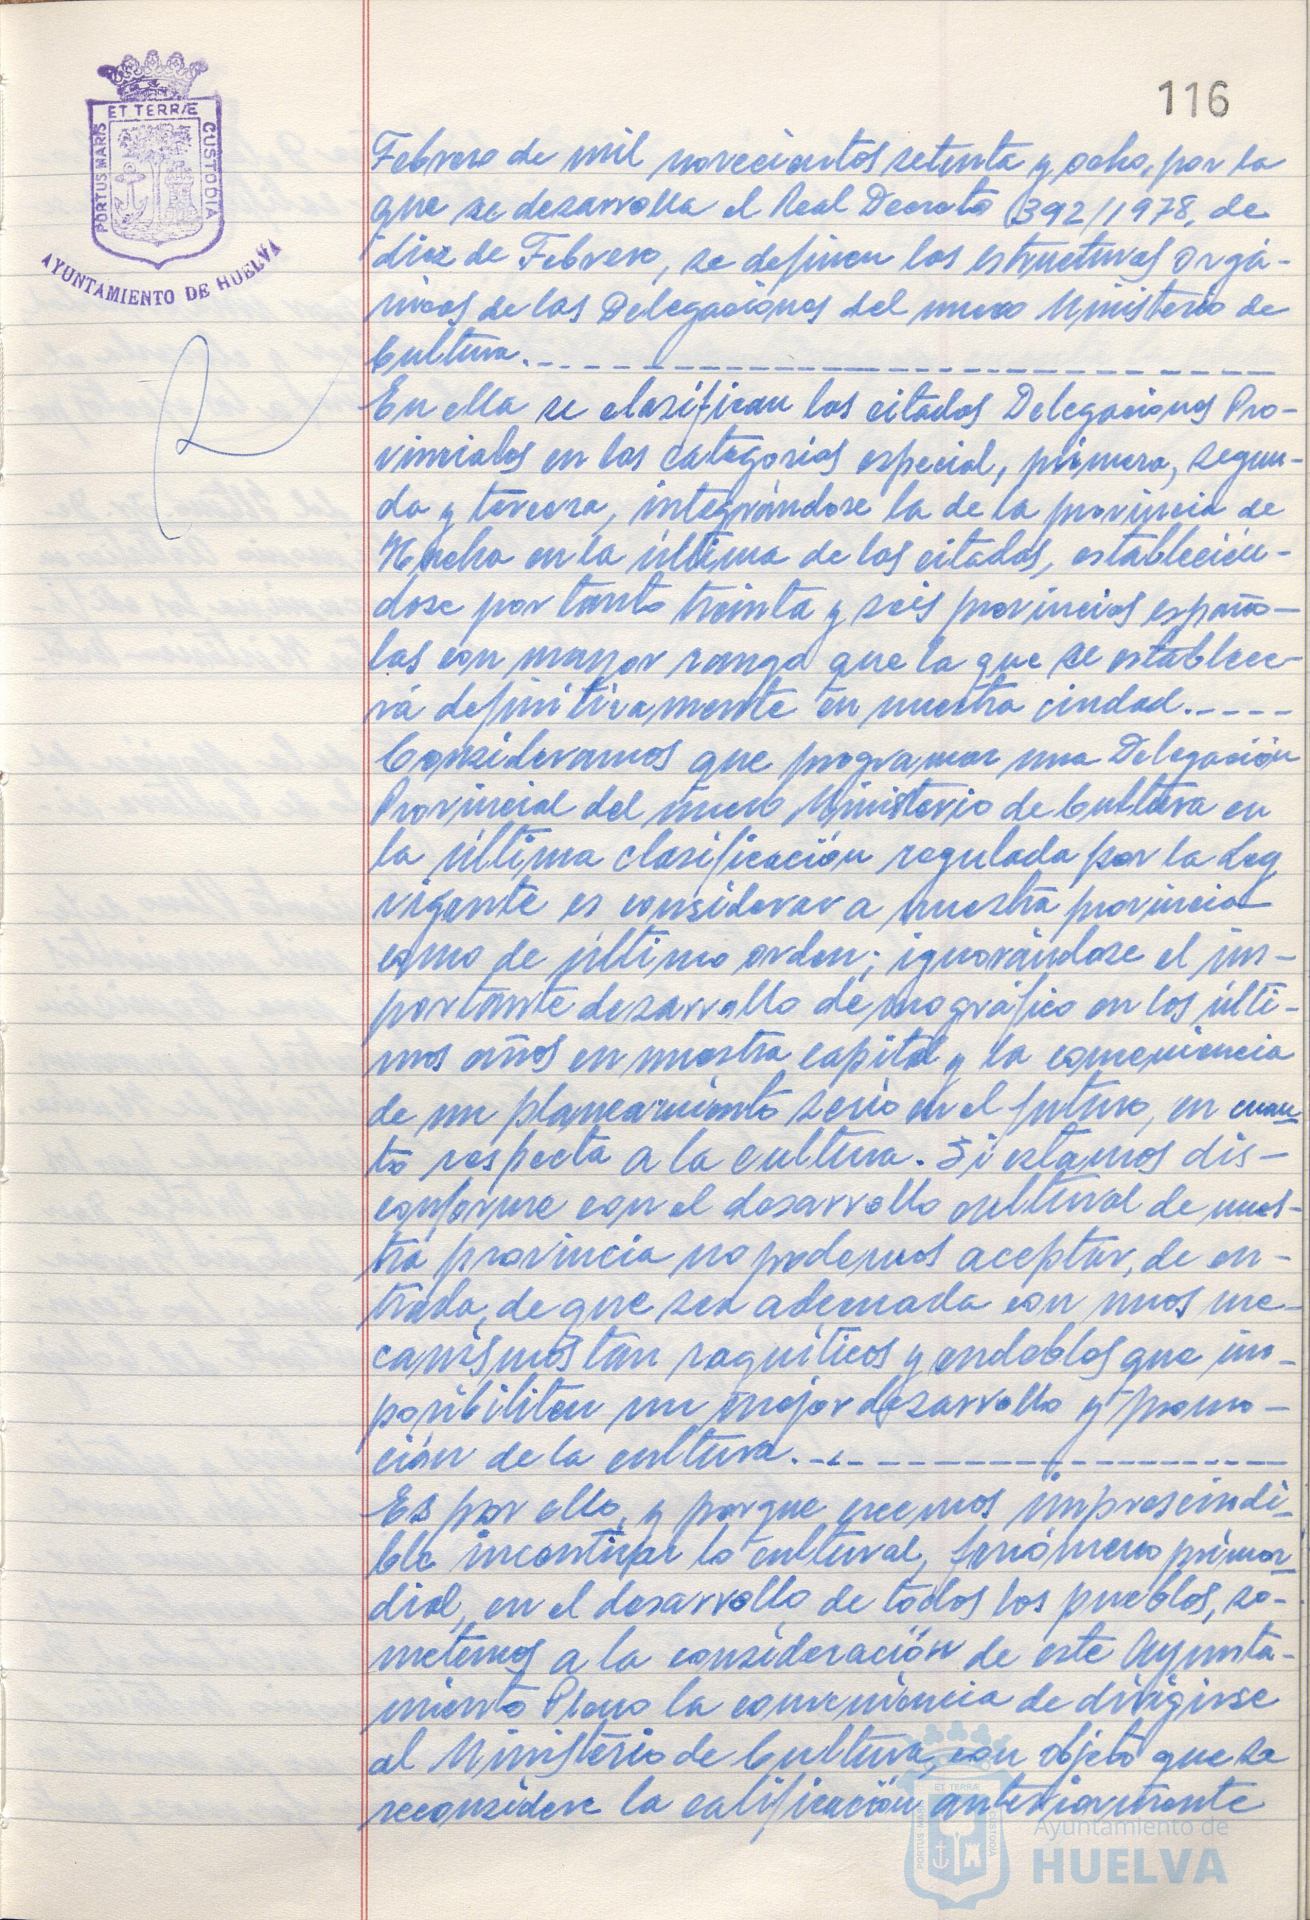 116
ET TERRÆ
PORTUS MARIS
CUSTODIA
AYUNTAMIENTO DE HUELVA
Febrero de mil novecientos setenta y ocho, por la
que se desarrolla el Real Decreto 392/1978, de
diez de Febrero, se definen las estructuras orgá-
nicas de las Delegaciones del nuevo Ministerio de
Cultura.
En ella se clasifican las citadas Delegaciones Pro-
vinciales en las categorías especial, primera, segun-
da y tercera, integrándose la de la provincia de
Huelva en la última de las citadas, establecién-
dose por tanto treinta y seis provincias españo-
las con mayor rango que la que se establece-
rá definitivamente en nuestra ciudad.
Consideramos que programar una Delegación
Provincial del nuevo Ministerio de Cultura en
la última clasificación regulada por la Ley
vigente es considerar a nuestra provincia
como de último orden; ignorándose el im-
portante desarrollo demográfico en los últi-
mos años en nuestra capital y la conveniencia
de un planeamiento serio en el futuro, en cuan-
to respecta a la cultura. Si estamos dis-
conforme con el desarrollo cultural de nues-
tra provincia no podemos aceptar, de en-
trada, de que sea adecuada con unos me-
canismos tan raquíticos y endebles que im-
posibiliten un mejor desarrollo y promo-
ción de la cultura.
Es por ello, y porque creemos imprescindi-
ble incentivar lo cultural, fenómeno primor-
dial, en el desarrollo de todos los pueblos, so-
metemos a la consideración de este Ayunta-
miento Pleno la conveniencia de dirigirse
al Ministerio de Cultura, con objeto que se
reconsidere la calificación anteriormente
ET TERRÆ
PORTUS MARIS
CUSTODIA
Ayuntamiento de
HUELVA